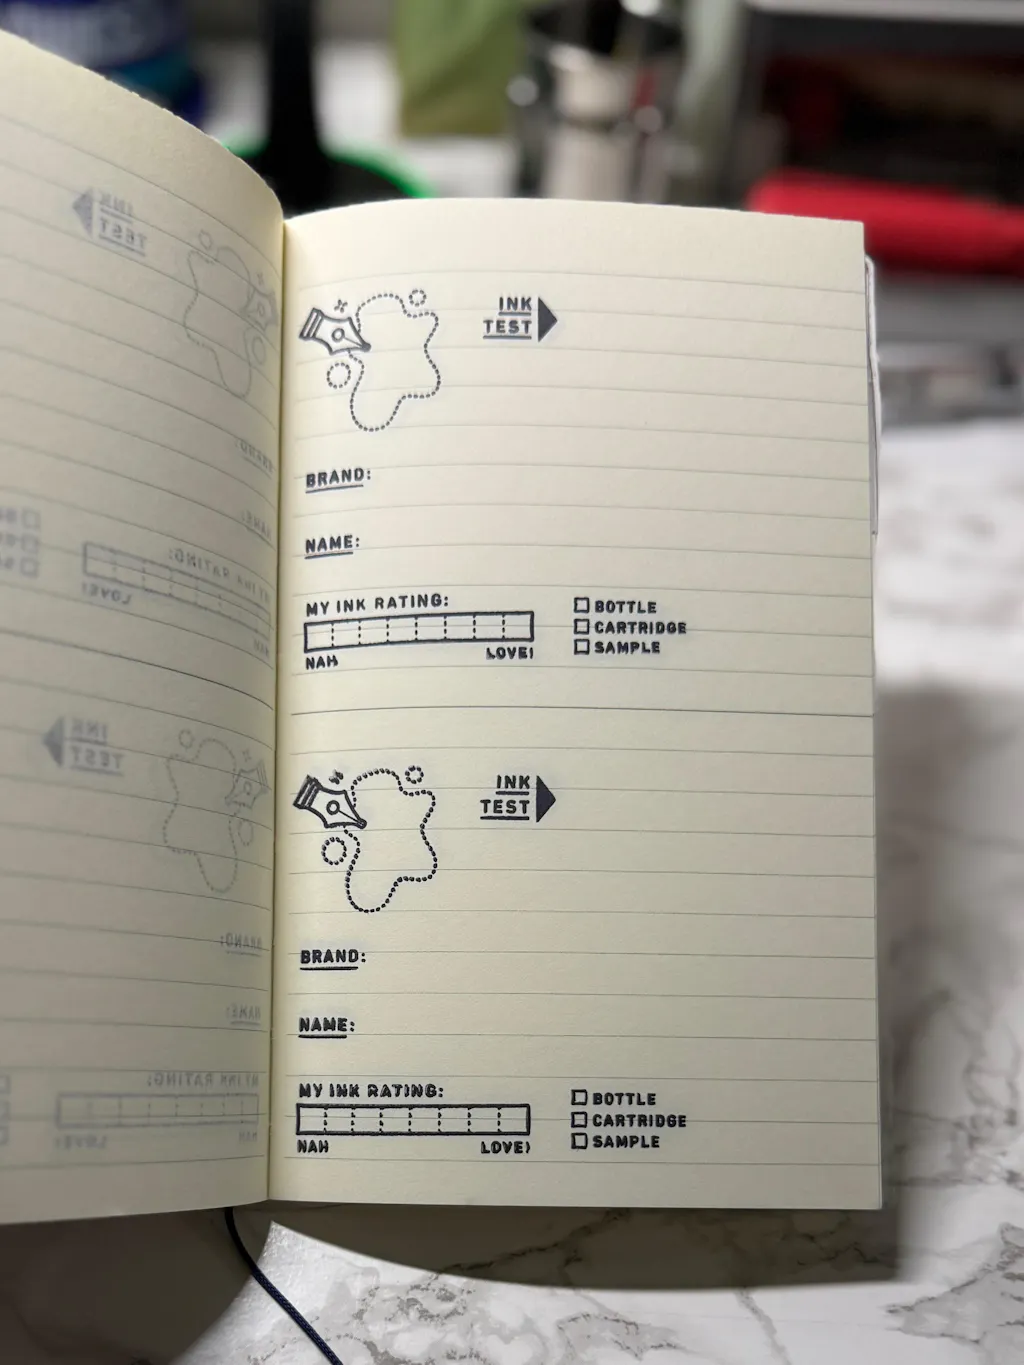 INK
TEST
BRAND:
NAME:
MY INK RATING:
NAH
LOVE!
BOTTLE
CARTRIDGE
SAMPLE
INK
TEST
BRAND:
NAME:
MY INK RATING:
NAH
LOVE!
BOTTLE
CARTRIDGE
SAMPLE